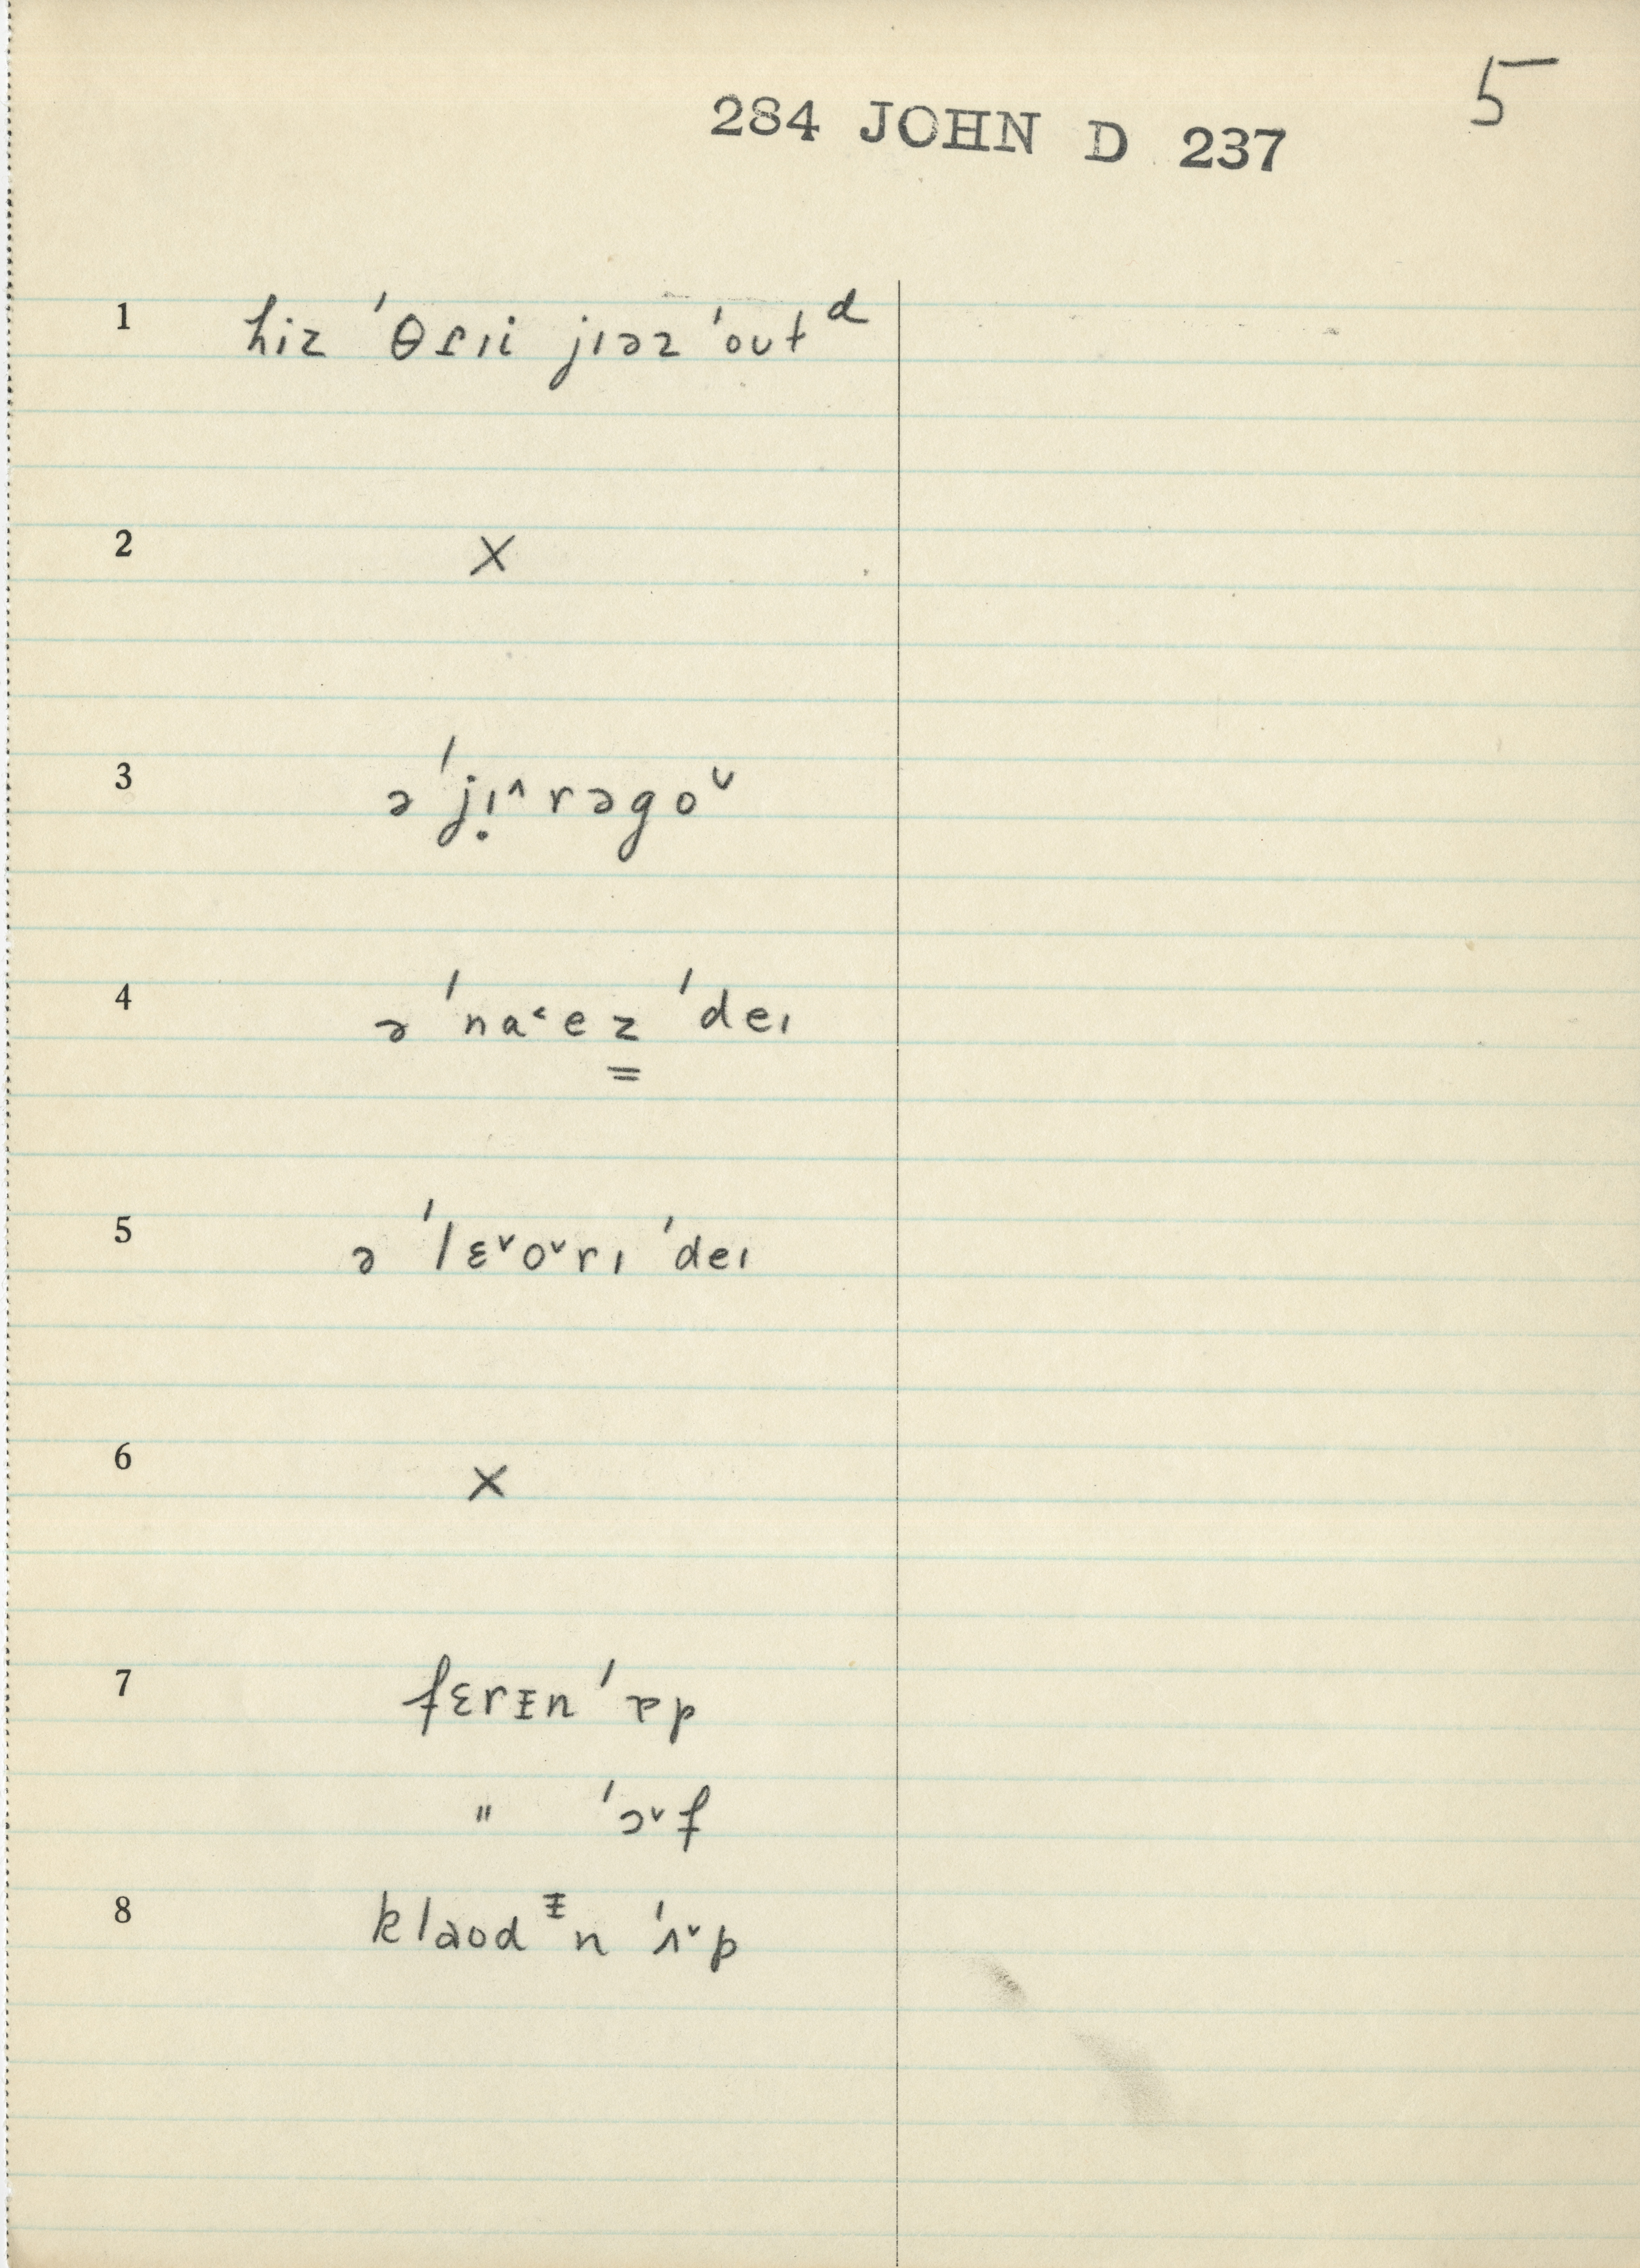 5
284 JOHN D 237
1 hiz ˈθɾɪi jɪəz ˈoutᵈ
2 X
3 ə ˈjɪ̣^rəgoᵛ
4 ə ˈna˂ez̳ ˈdeɪ
5 ə ˈlɛᵛoᵛrɪ ˈdeɪ
6 X
7 fɛrᵻn ˈɐp
" ˈɔᵛf
8 klaodᵻn ˈʌᵛp